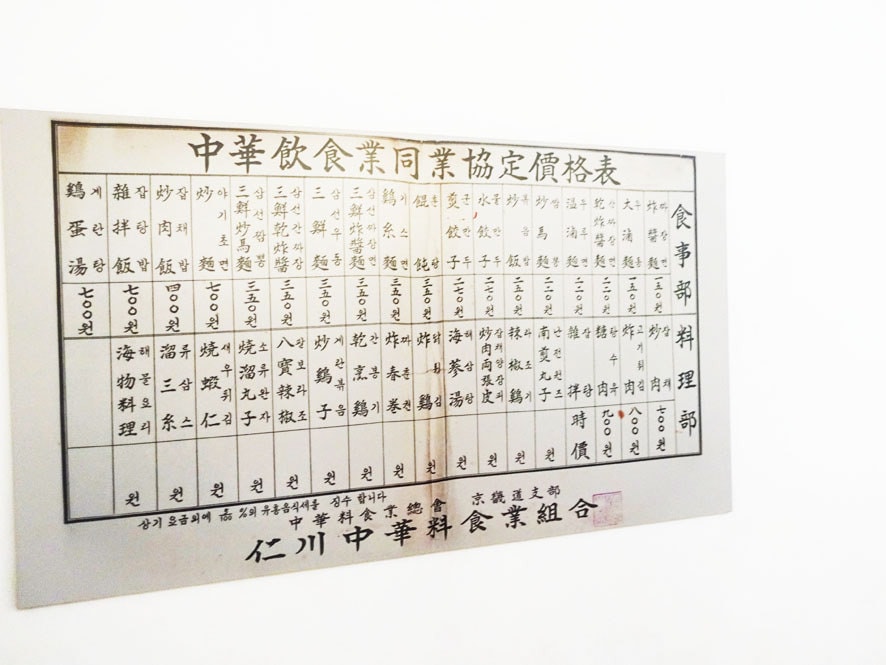 中華飲食業同業協定價格表
食事部
炸醬麵 짜장면 一五0원
大滷麵 우동 一五0원
乾炸醬麵 간짜장면 二二0원
溫滷麵 二二0원
炒馬麵 짬뽕 二二0원
炒飯 볶음밥 二二0원
水餃子 물만두 二七0원
煎餃子 군만두 二七0원
餛飩 훈탕 三五0원
鷄糸麵 기스면 三五0원
三鮮炸醬麵 삼선짜장면 三五0원
三鮮麵 삼선우동 三五0원
三鮮乾炸醬 삼선간짜장 三五0원
三鮮炒馬麵 삼선짬뽕 三五0원
炒麵 야기초면 七00원
炒肉飯 잡채밥 四00원
雜拌飯 잡탕밥 七00원
鷄蛋湯 계란탕 七00원
料理部
炒肉 잡채 七00원
炸肉 고기튀김 八00원
糖肉 탕수육 九00원
雜拌 잡탕 時價
南煎丸子 난전완즈 원
辣椒鷄 라조기 원
炒肉両張皮 잡채양장피 원
海蔘湯 해삼탕 원
炸鷄 닭튀김 원
炸春卷 짜춘권 원
乾烹鷄 간풍기 원
炒鷄子 계란볶음 원
八寶辣椒 팔보라조 원
燒溜丸子 소류완자 원
燒蝦仁 새우튀김 원
溜三糸 류삼스 원
海物料理 해물요리 원
상기 요금외에 %의 유흥음식세를 징수합니다
中華料食業總會 京畿道支部
仁川中華料食業組合